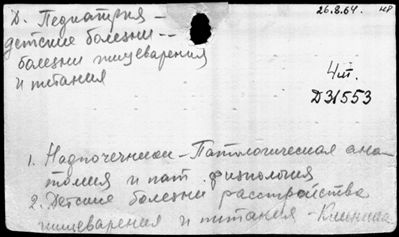 Д. Педиатрия –
детские болезни --
болезни пищеварения
и питания
26.8.64. НР
4 лт.
Д31553
1. Надпочечники – Патологическая ана-
томия и пат. физиология
2. Детские болезни расстройства
пищеварения и питания – Клиника